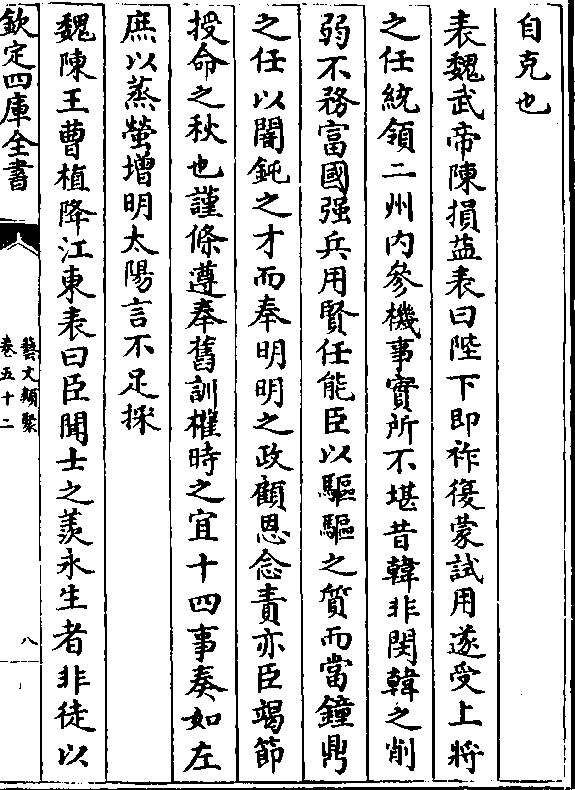 自克也
表魏武帝陳損益表曰陛下即祚復蒙試用遂受上將
之任統領二州内參機事實所不堪昔韓非閔韓之削
弱不務富國强兵用賢任能臣以驅驅之質而當鐘鼎
之任以闇鈍之才而奉明明之政顧恩念責亦臣竭節
授命之秋也謹條遵奉舊訓權時之宜十四事奏如左
庶以蒸螢增明太陽言不足採
魏陳王曹植降江東表曰臣聞士之羨永生者非徒以
欽定四庫全書
藝文類聚
卷五十二
八